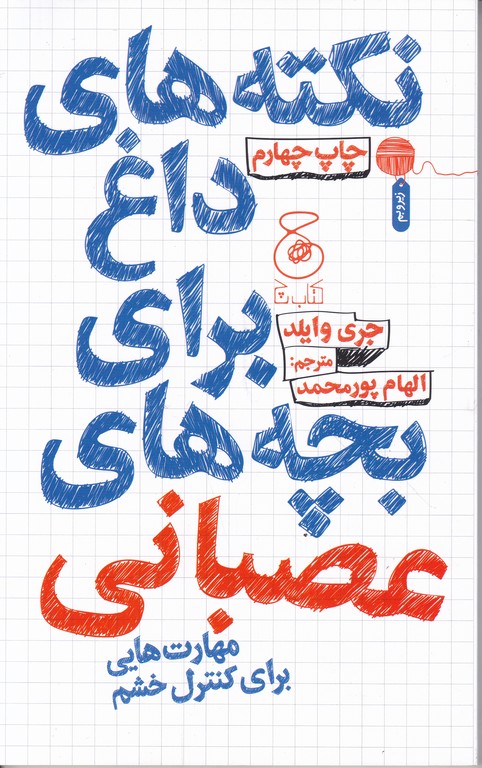 نکته‌های
چاپ چهارم
داغ
زیر و بم
کتاب چ
برای
جری وایلد
مترجم:
الهام پورمحمد
بچه‌های
عصبانی
مهارت‌هایی
برای کنترل خشم